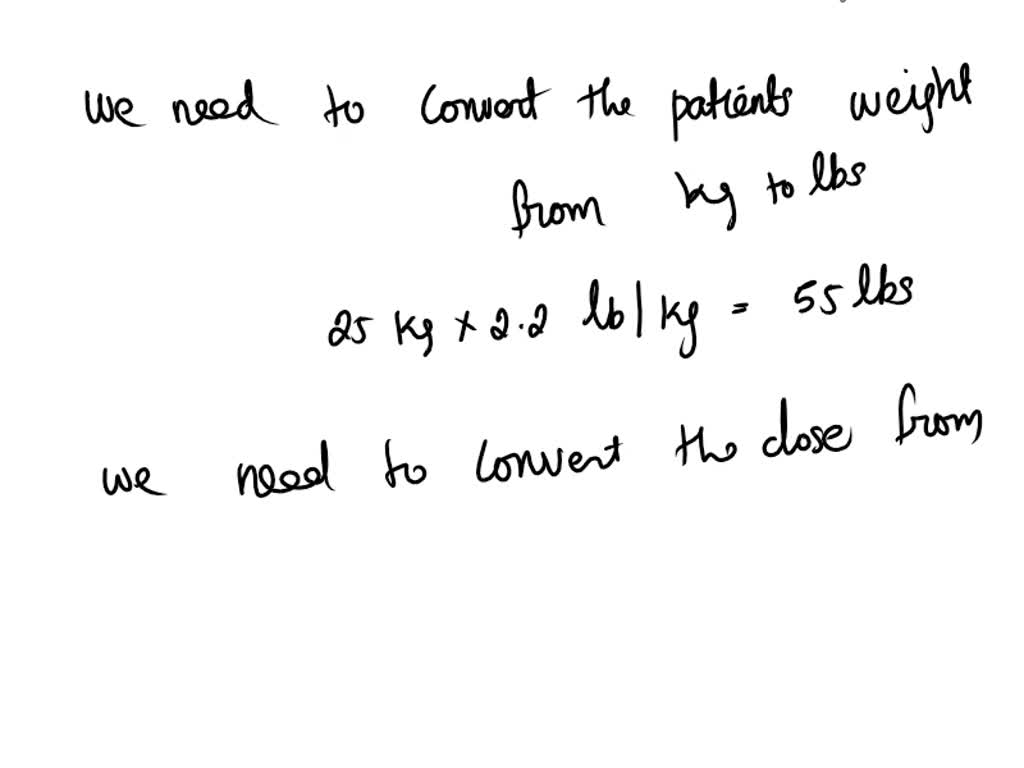 we need to convert the patients weight
from kg to lbs
25 kg × 2.2 lb/kg = 55 lbs
we need to convert the dose from